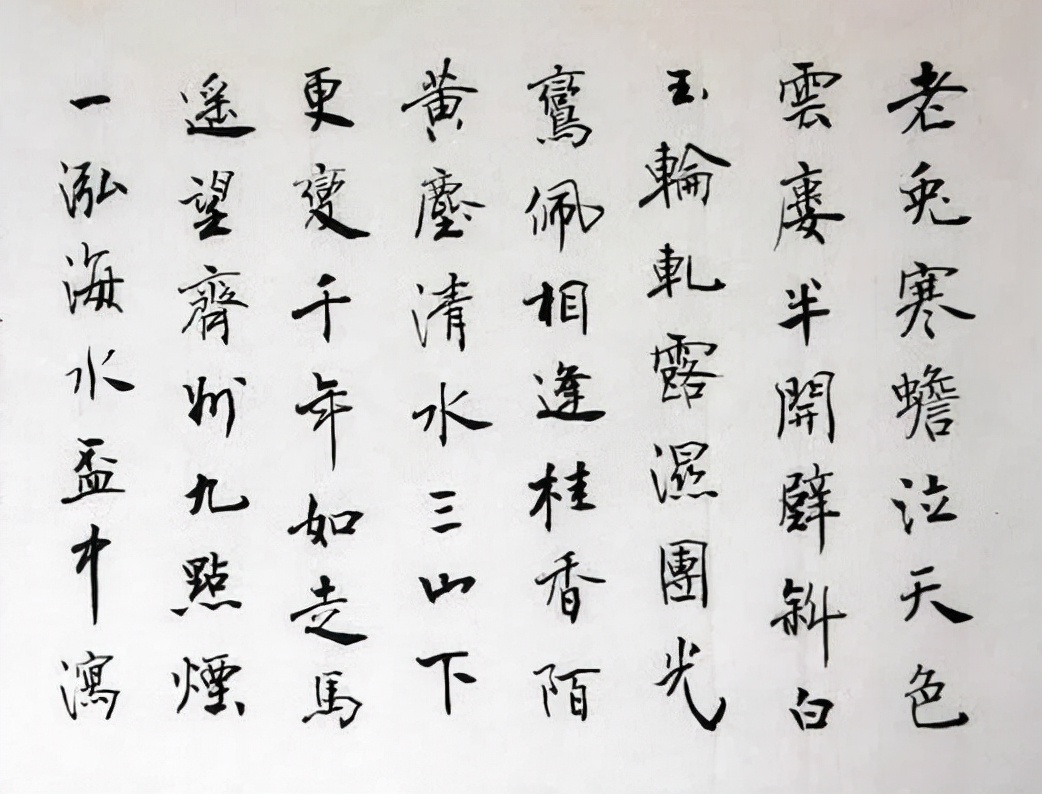 老兔寒蟾泣天色
雲廔半開壁斜白
玉輪軋露濕團光
鸞佩相逢桂香陌
黃塵清水三山下
更變千年如走馬
遥望齊州九點煙
一泓海水盃中瀉